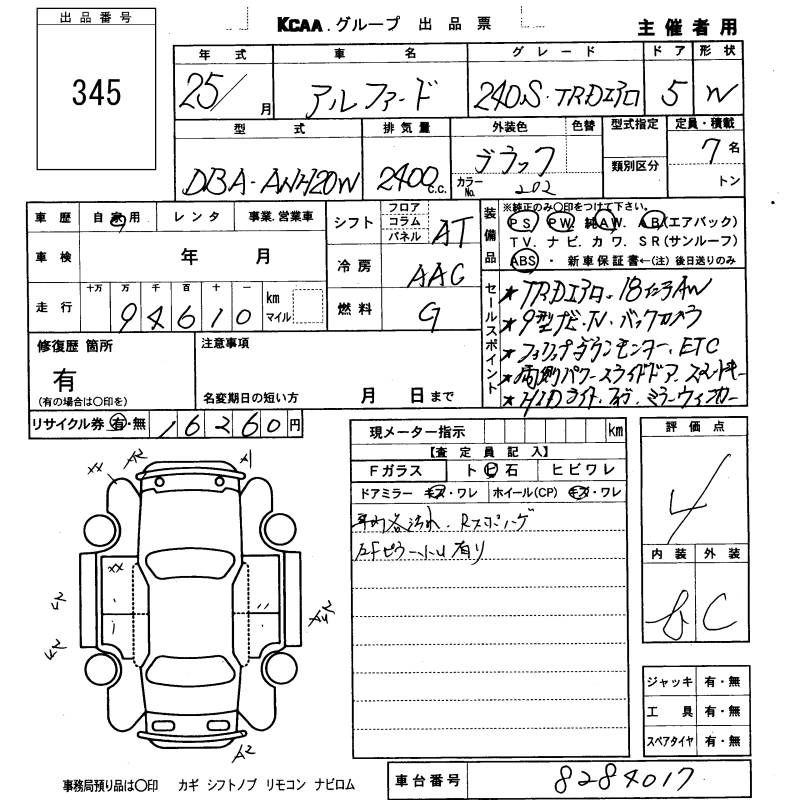 出品番号
345
KCAA.グループ 出品票
主催者用
年式 車名 グレード ドア 形状
25/ 月 アルファード 240S・TRDエアロ 5 W
型式 排気量 外装色 色替 型式指定 定員・積載
DBA-ANH20W 2400 c.c. ブラック カラーNo. 202 類別区分 7名 トン
車歴 自家用 レンタ 事業.営業車
シフト フロア コラム パネル AT
車検 年 月
冷房 AAC
走行 十万 万 千 百 十 一 km マイル
94610
燃料 G
装備品 ※純正のみ〇印をつけて下さい。
PS. PW. 純AW. AB(エアバック)
TV. ナビ. カワ. SR(サンルーフ)
ABS ・ 新車保証書←(注) 後日送りのみ
セールスポイント
★TRDエアロ・18インチAW
★9型ナビ・TV・バックカメラ
★フリップダウンモニター、ETC
★両側パワースライドドア、スマートキー
★HIDライト・フォグ・ミラーウィンカー
修復歴 箇所
有
(有の場合は〇印を)
注意事項
名変期日の短い方 月 日まで
リサイクル券 有・無 16260円
現メーター指示 km
【査定員記入】
Fガラス トビ石 ヒビワレ
ドアミラー キズ・ワレ ホイール(CP) キズ・ワレ
車内各汚れ、Rスポキズ
評価点
4
内装 外装
B C
ジャッキ 有・無
工具 有・無
スペアタイヤ 有・無
XX A2 A1
XX
A2
A2
A2
事務局預り品は〇印 カギ シフトノブ リモコン ナビロム
車台番号 8284017